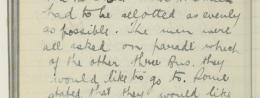 had to be allotted as evenly
as possible. The men were
all asked on parade which
of the other three Bns. they
would like to go to. Some
stated that they would like